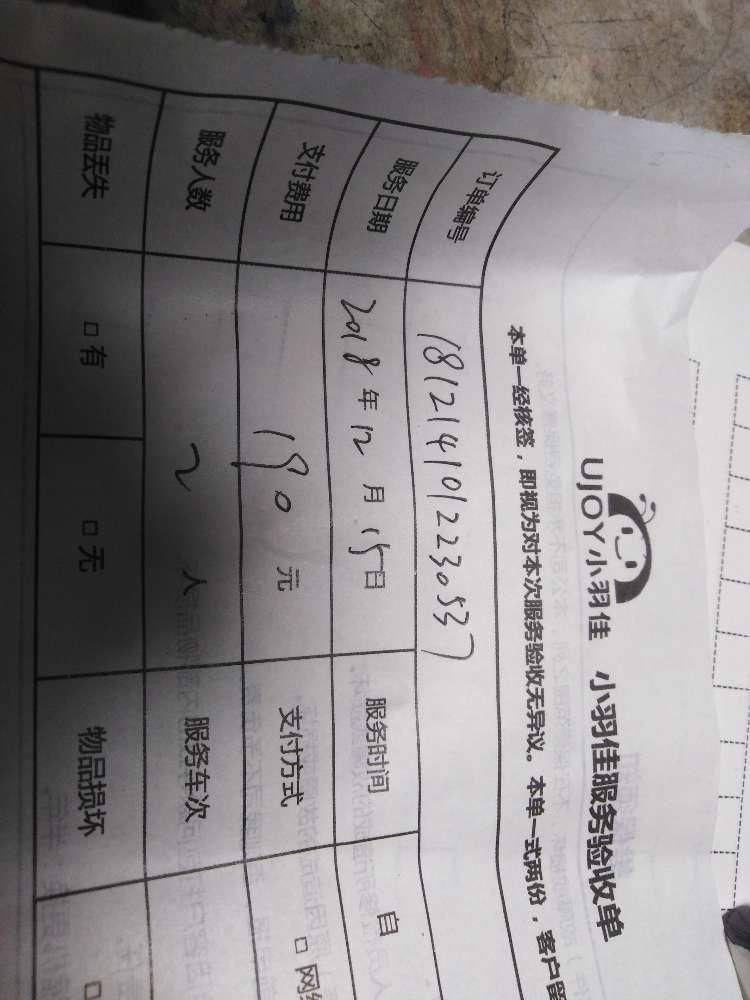 UJOY小羽佳 小羽佳服务验收单
本单一经核签，即视为对本次服务验收无异议。本单一式两份，客户留
订单编号 1812141012230537
服务日期 2018年12月15日 服务时间 自
支付费用 190元 支付方式 □网络
服务人数 2人 服务车次
物品丢失 □有 □无 物品损坏 □